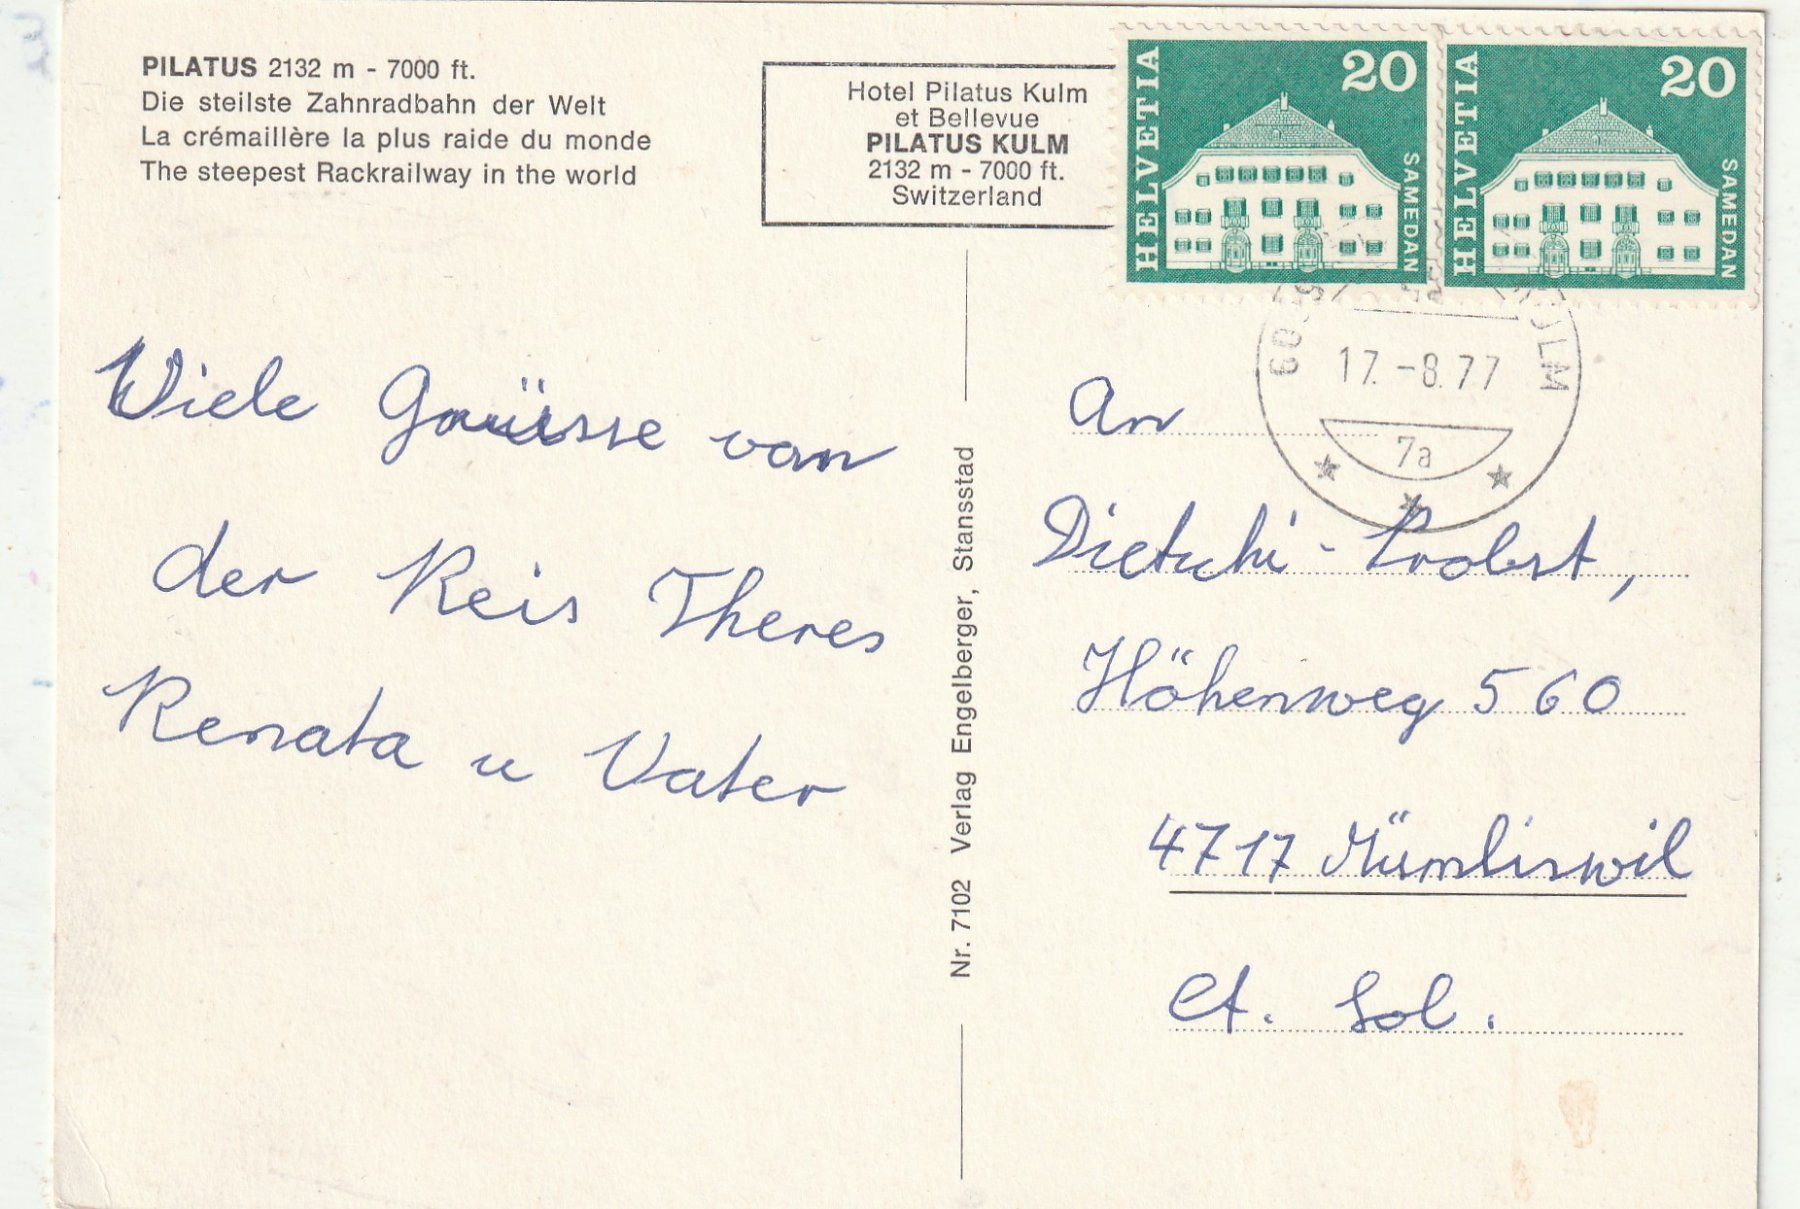 PILATUS 2132 m - 7000 ft.
Die steilste Zahnradbahn der Welt
La crémaillère la plus raide du monde
The steepest Rackrailway in the world
Hotel Pilatus Kulm
et Bellevue
PILATUS KULM
2132 m - 7000 ft.
Switzerland
HELVETIA
20
SAMEDAN
HELVETIA
20
SAMEDAN
17.-8.77
7a
Viele Grüsse von
der Reis Theres
Renata u Vater
Nr. 7102 Verlag Engelberger, Stansstad
An
Dietschi-Probst,
Höhenweg 560
4717 Mümliswil
Ct. Sol.